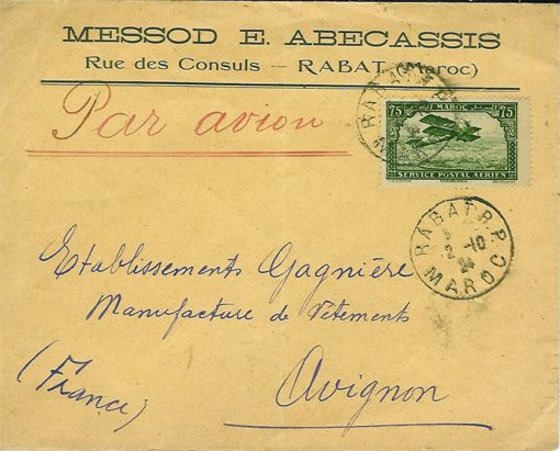 MESSOD E. ABECASSIS
Rue des Consuls — RABAT (Maroc)
Par avion
75 MAROC 75
SERVICE POSTAL AÉRIEN
RABAT R.P
2-10
24
MAROC
Etablissements Gagnière
Manufacture de Vêtements
(France)
Avignon